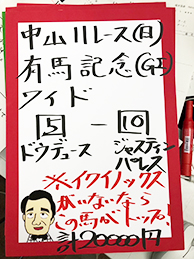 中山11レース(日)
有馬記念(GⅠ)
ワイド
5 − 10
ドウデュース ジャスティンパレス
※イクイノックス
がいないなら
この馬がトップ!
計20000円